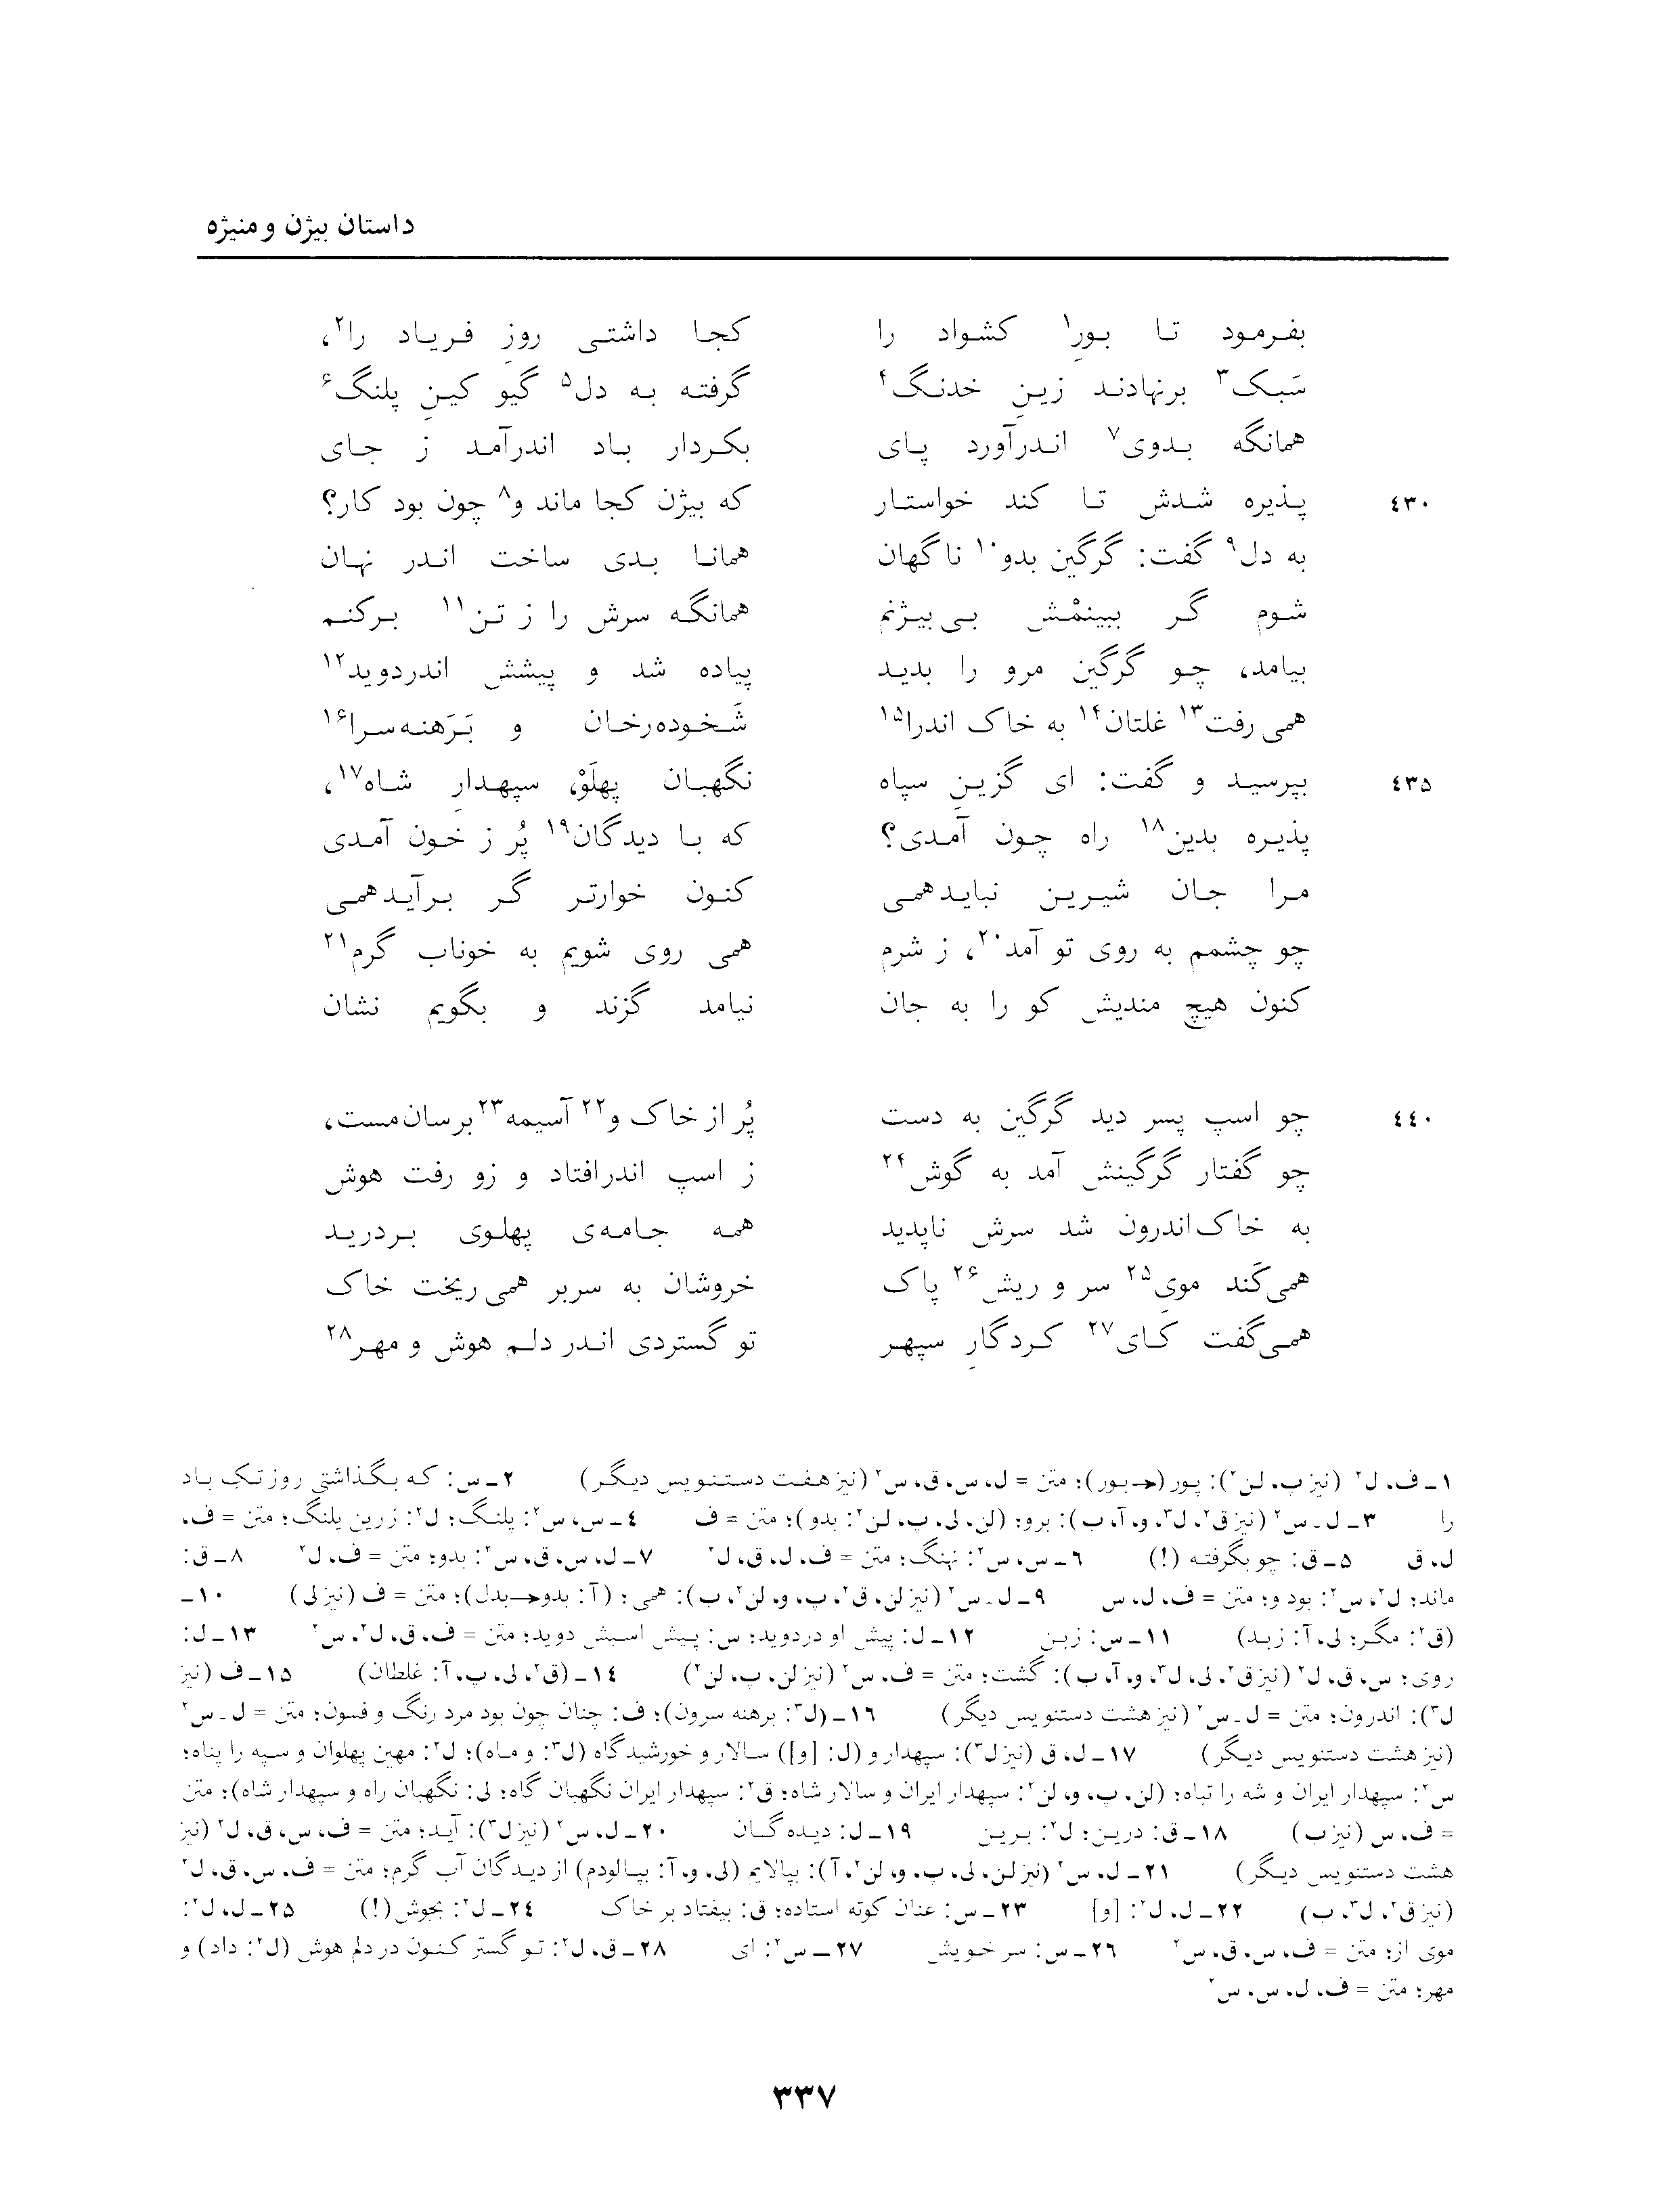 داستان بیژن و منیژه
بفرمود تا بورِ۱ کشواد را کجا داشتی روزِ فریاد را۲،
سَبک۳ برنهادند زینِ خدنگ۴ گرفته به دل۵ گیو کینِ پلنگ۶
همانگه بدوی۷ اندرآورد پای بکردار باد اندرآمد ز جای
٤٣٠ پذیره شدش تا کند خواستار که بیژن کجا ماند و۸ چون بود کار؟
به دل۹ گفت: گرگین بدو۱۰ ناگهان همانا بدی ساخت اندر نهان
شوم گر ببینمْش بی‌بیژنم همانگه سرش را ز تن۱۱ برکنم
بیامد، چو گرگین مرو را بدید پیاده شد و پیشش اندردوید۱۲
همی‌رفت۱۳ غلتان۱۴ به خاک اندرا۱۵ شَخوده‌رخان و بَرَهنه‌سرا۱۶
٤٣۵ بپرسید و گفت: ای گزینِ سپاه نگهبان پهلَوْ، سپهدارِ شاه۱۷،
پذیره بدین۱۸ راه چون آمدی؟ که با دیدگان۱۹ پُر ز خون آمدی
مرا جان شیرین نباید‌همی کنون خوارتر گر برآید‌همی
چو چشمم به روی تو آمد۲۰، ز شرم همی روی شویم به خوناب گرم۲۱
کنون هیچ مندیش کو را به جان نیامد گزند و بگویم نشان
٤٤٠ چو اسپ پسر دید گرگین به دست پُر از خاک و۲۲ آسیمه۲۳ برسان‌مست،
چو گفتار گرگینش آمد به گوش۲۴ ز اسپ اندرافتاد و زو رفت هوش
به خاک‌اندرون شد سرش ناپدید همه جامه‌ی پهلوی بردرید
همی‌کَند مویِ۲۵ سر و ریش۲۶ پاک خروشان به سربر همی‌ریخت خاک
همی‌گفت کای۲۷ کردگارِ سپهر تو گستردی اندر دلم هوش و مهر۲۸
۱ـ ف، ل۲ (نیز پ، لن۲): پور (→ بور)؛ متن = ل، س، ق، س۲ (نیز هفت دستنویس دیگر) ۲ـ س: که بگذاشتی روز تک باد
را ۳ـ ل ـ س۲ (نیز ق۲، ل۳، و، آ، ب): برو؛ (لن، لی، پ، لن۲: بدو)؛ متن = ف ٤ـ س، س۲: پلنگ؛ ل۲: زرین پلنگ؛ متن = ف،
ل، ق ۵ـ ق: چو بگرفته (!) ٦ـ س، س۲: نهنگ؛ متن = ف، ل، ق، ل۲ ۷ـ ل، س، ق، س۲: بدو؛ متن = ف، ل۲ ۸ـ ق:
ماند؛ ل۲، س۲: بود و؛ متن = ف، ل، س ۹ـ ل ـ س۲ (نیز لن، ق۲، پ، و، لن۲، ب): همی؛ (آ: بدو → بدل)؛ متن = ف (نیز لی) ۱۰ـ
(ق۲: مگر؛ لی، آ: زبد) ۱۱ـ س: زبن ۱۲ـ ل: پیش او دردوید؛ س: پیش اسبش دوید؛ متن = ف، ق، ل۲، س۲ ۱۳ـ ل:
روی؛ س، ق، ل۲ (نیز ق۲، لی، ل۳، و، آ، ب): گشت؛ متن = ف، س۲ (نیز لن، پ، لن۲) ۱٤ـ (ق۲، لی، پ، آ: غلطان) ۱۵ـ ف (نیز
ل۳): اندرون؛ متن = ل ـ س۲ (نیز هشت دستنویس دیگر) ۱٦ـ (ل۳: برهنه سرون)؛ ف: چنان چون بود مرد رنگ و فسون؛ متن = ل ـ س۲
(نیز هشت دستنویس دیگر) ۱۷ـ ل، ق (نیز ل۳): سپهدار و (ل: [و]) سالار و خورشیدگاه (ل۳: و ماه)؛ ل۲: مهین پهلوان و سپه را پناه؛
س۲: سپهدار ایران و شه را تباه؛ (لن، پ، و، لن۲: سپهدار ایران و سالار شاه؛ ق۲: سپهدار ایران نگهبان گاه؛ لی: نگهبان راه و سپهدار شاه)؛ متن
= ف، س (نیز ب) ۱۸ـ ق: درین؛ ل۲: برین ۱۹ـ ل: دیده گان ۲۰ـ ل، س۲ (نیز ل۳): آید؛ متن = ف، س، ق، ل۲ (نیز
هشت دستنویس دیگر) ۲۱ـ ل، س۲ (نیز لن، لی، پ، و، لن۲، آ): بپالایم (لی، و، آ: بپالودم) از دیدگان آب گرم؛ متن = ف، س، ق، ل۲
(نیز ق۲، ل۳، ب) ۲۲ـ ل، ل۲: [و] ۲۳ـ س: عنان کوته استاده؛ ق: بیفتاد بر خاک ۲٤ـ ل۲: بجوش (!) ۲۵ـ ل، ل۲:
موی از؛ متن = ف، س، ق، س۲ ۲٦ـ س: سر خویش ۲۷ـ س۲: ای ۲۸ـ ق، ل۲: تو گستر کنون در دلم هوش (ل۲: داد) و
مهر؛ متن = ف، ل، س، س۲
۳۳۷